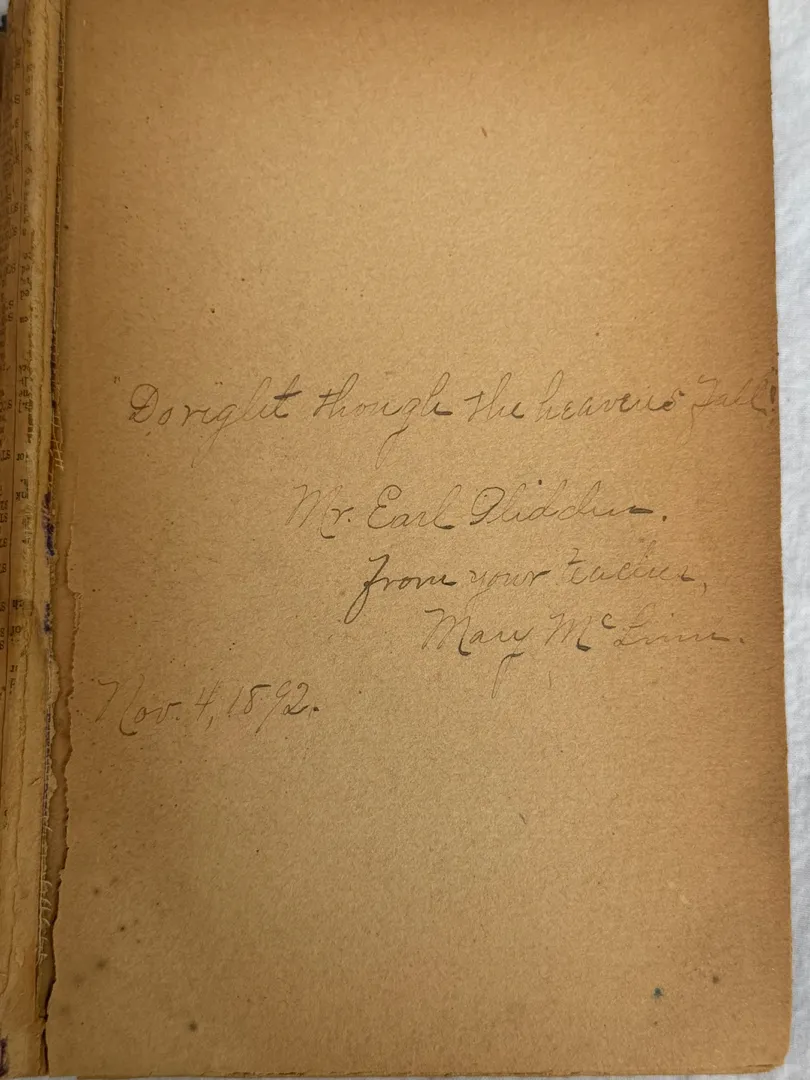 "Do right though the heavens fall."
Mr. Earl Glidden.
from your teacher,
Mary McLinn.
Nov. 4, 1892.